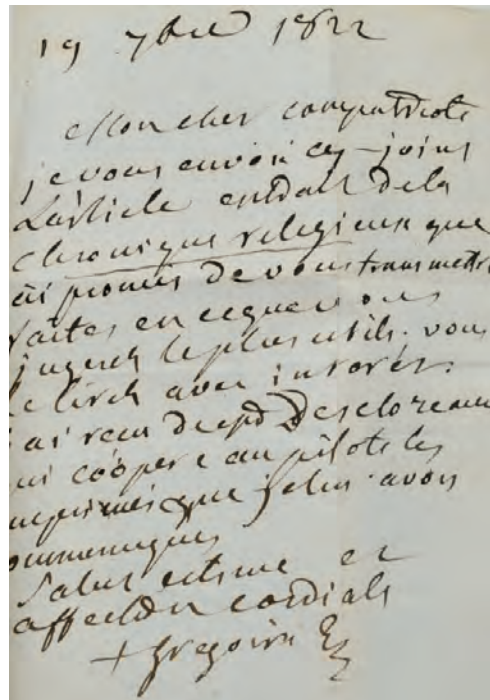 19 7bre 1822
Mon cher compatriote
je vous envoie cy-joint
L'article extrait de la
chronique religieuse que
ai promis de vous transmettre
faites en ce que vous
jugerez le plus utile. vous
le lirez avec interêt.
ai recu de
qui coöpere au pilote les
imprimés que je lui avois
communiqués
Salut estime et
affection cordiale
+ Gregoire